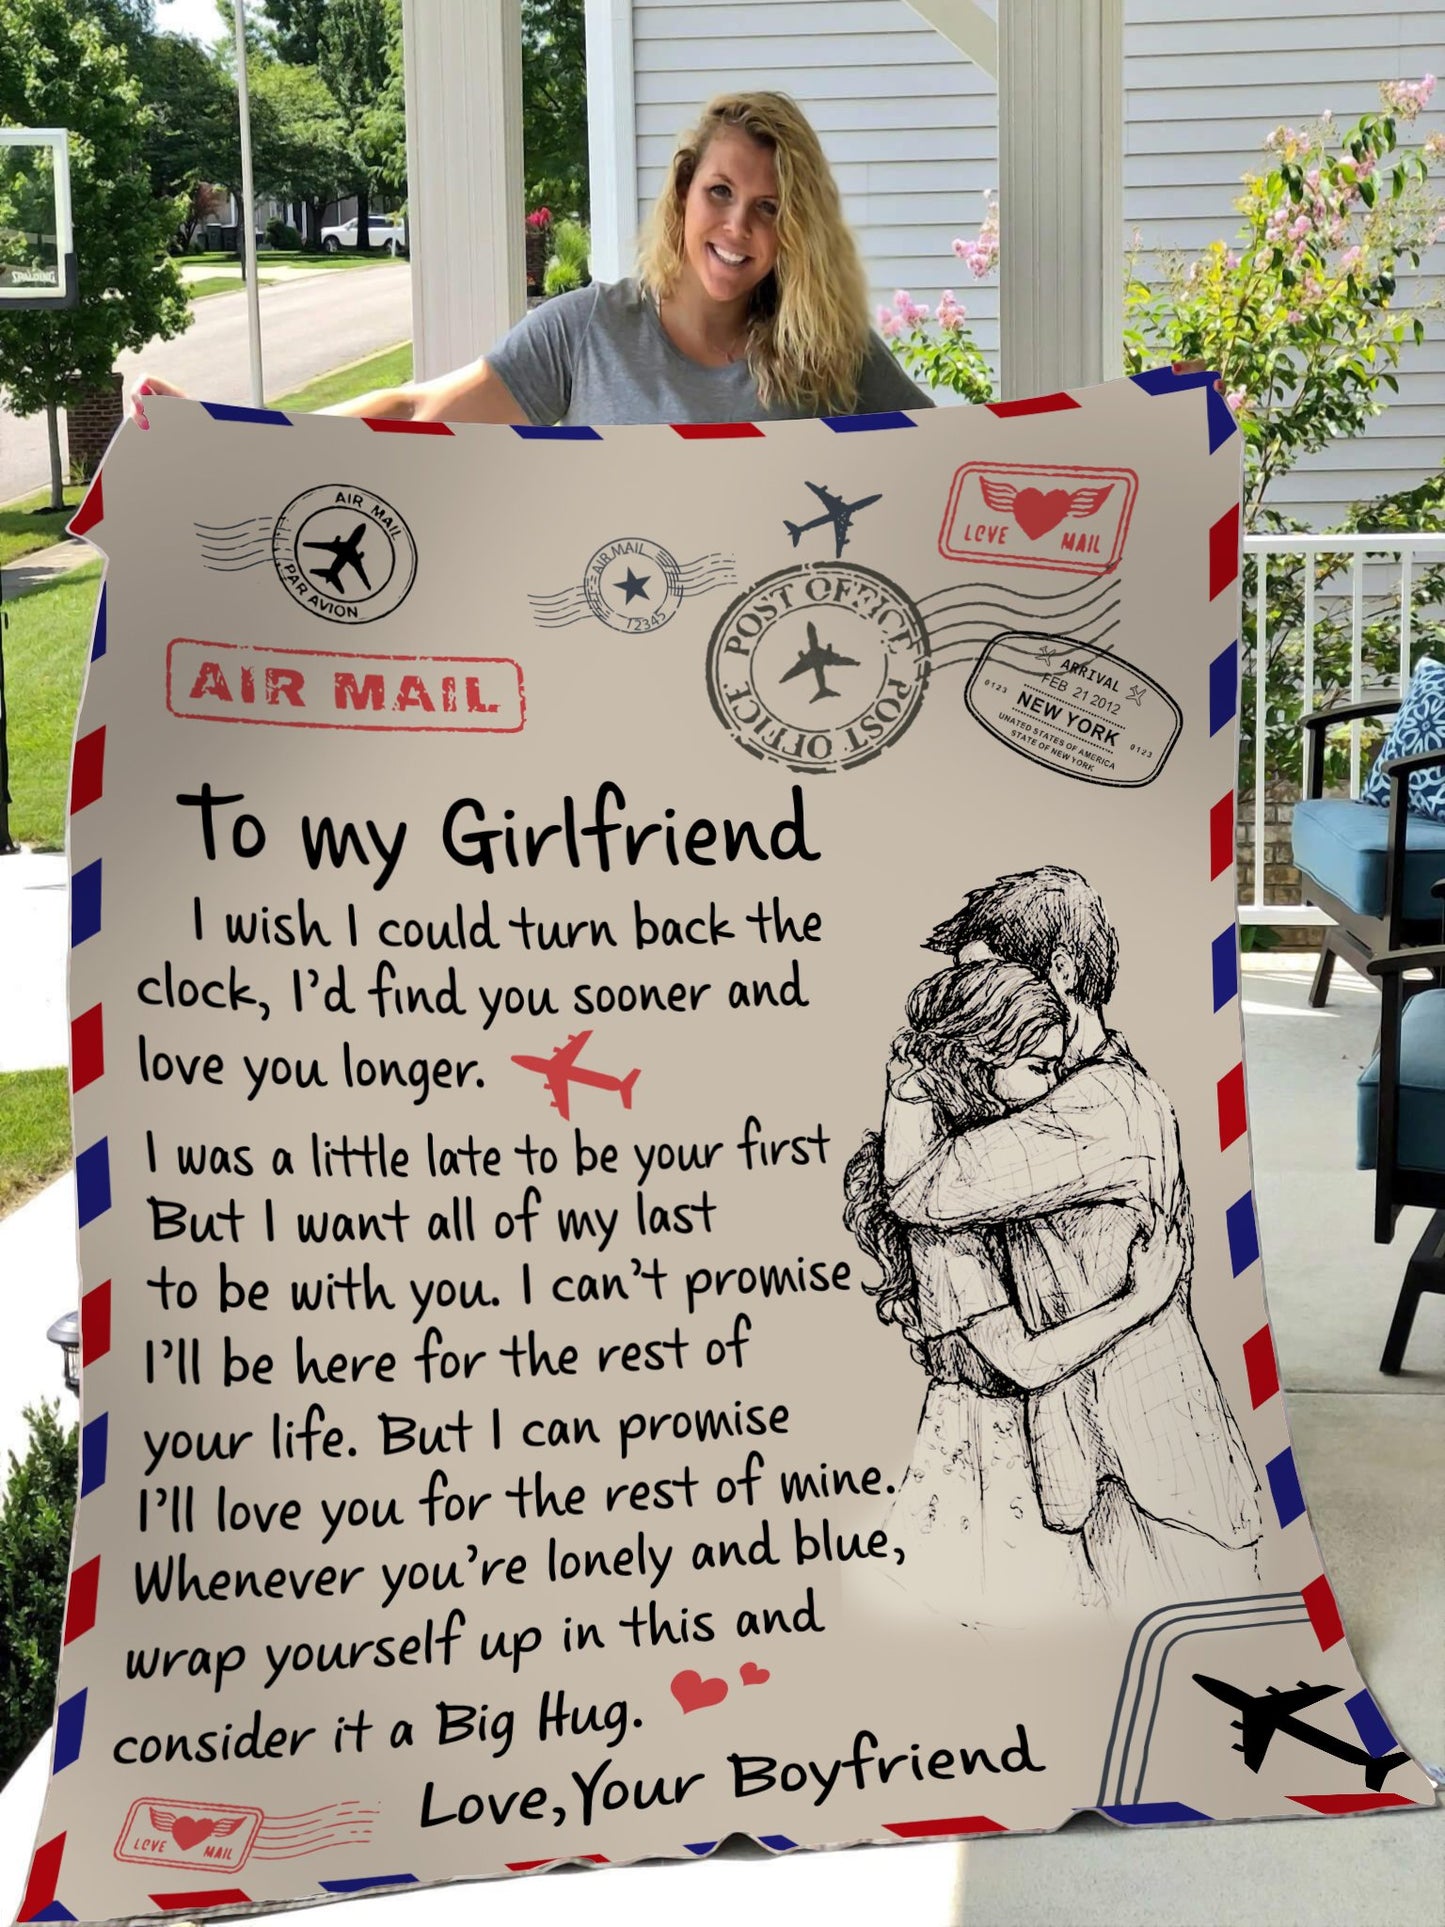 SPALDING
AIR MAIL
PAR AVION
AIR MAIL
12345
POST OFFICE
POST OFFICE
LOVE MAIL
ARRIVAL
FEB 21 2012
0123 NEW YORK 0123
UNATED STATES OF AMERICA
STATE OF NEW YORK
AIR MAIL
To my Girlfriend
I wish I could turn back the
clock, I'd find you sooner and
love you longer.
I was a little late to be your first
But I want all of my last
to be with you. I can't promise
I'll be here for the rest of
your life. But I can promise
I'll love you for the rest of mine.
Whenever you're lonely and blue,
wrap yourself up in this and
consider it a Big Hug.
Love, Your Boyfriend
LOVE MAIL